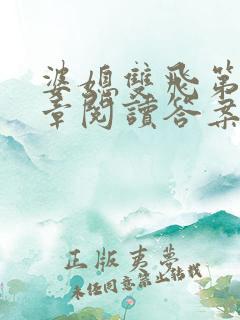 婆媳雙飛第
章閱讀答案
正版夷夢
未经同意禁止转载